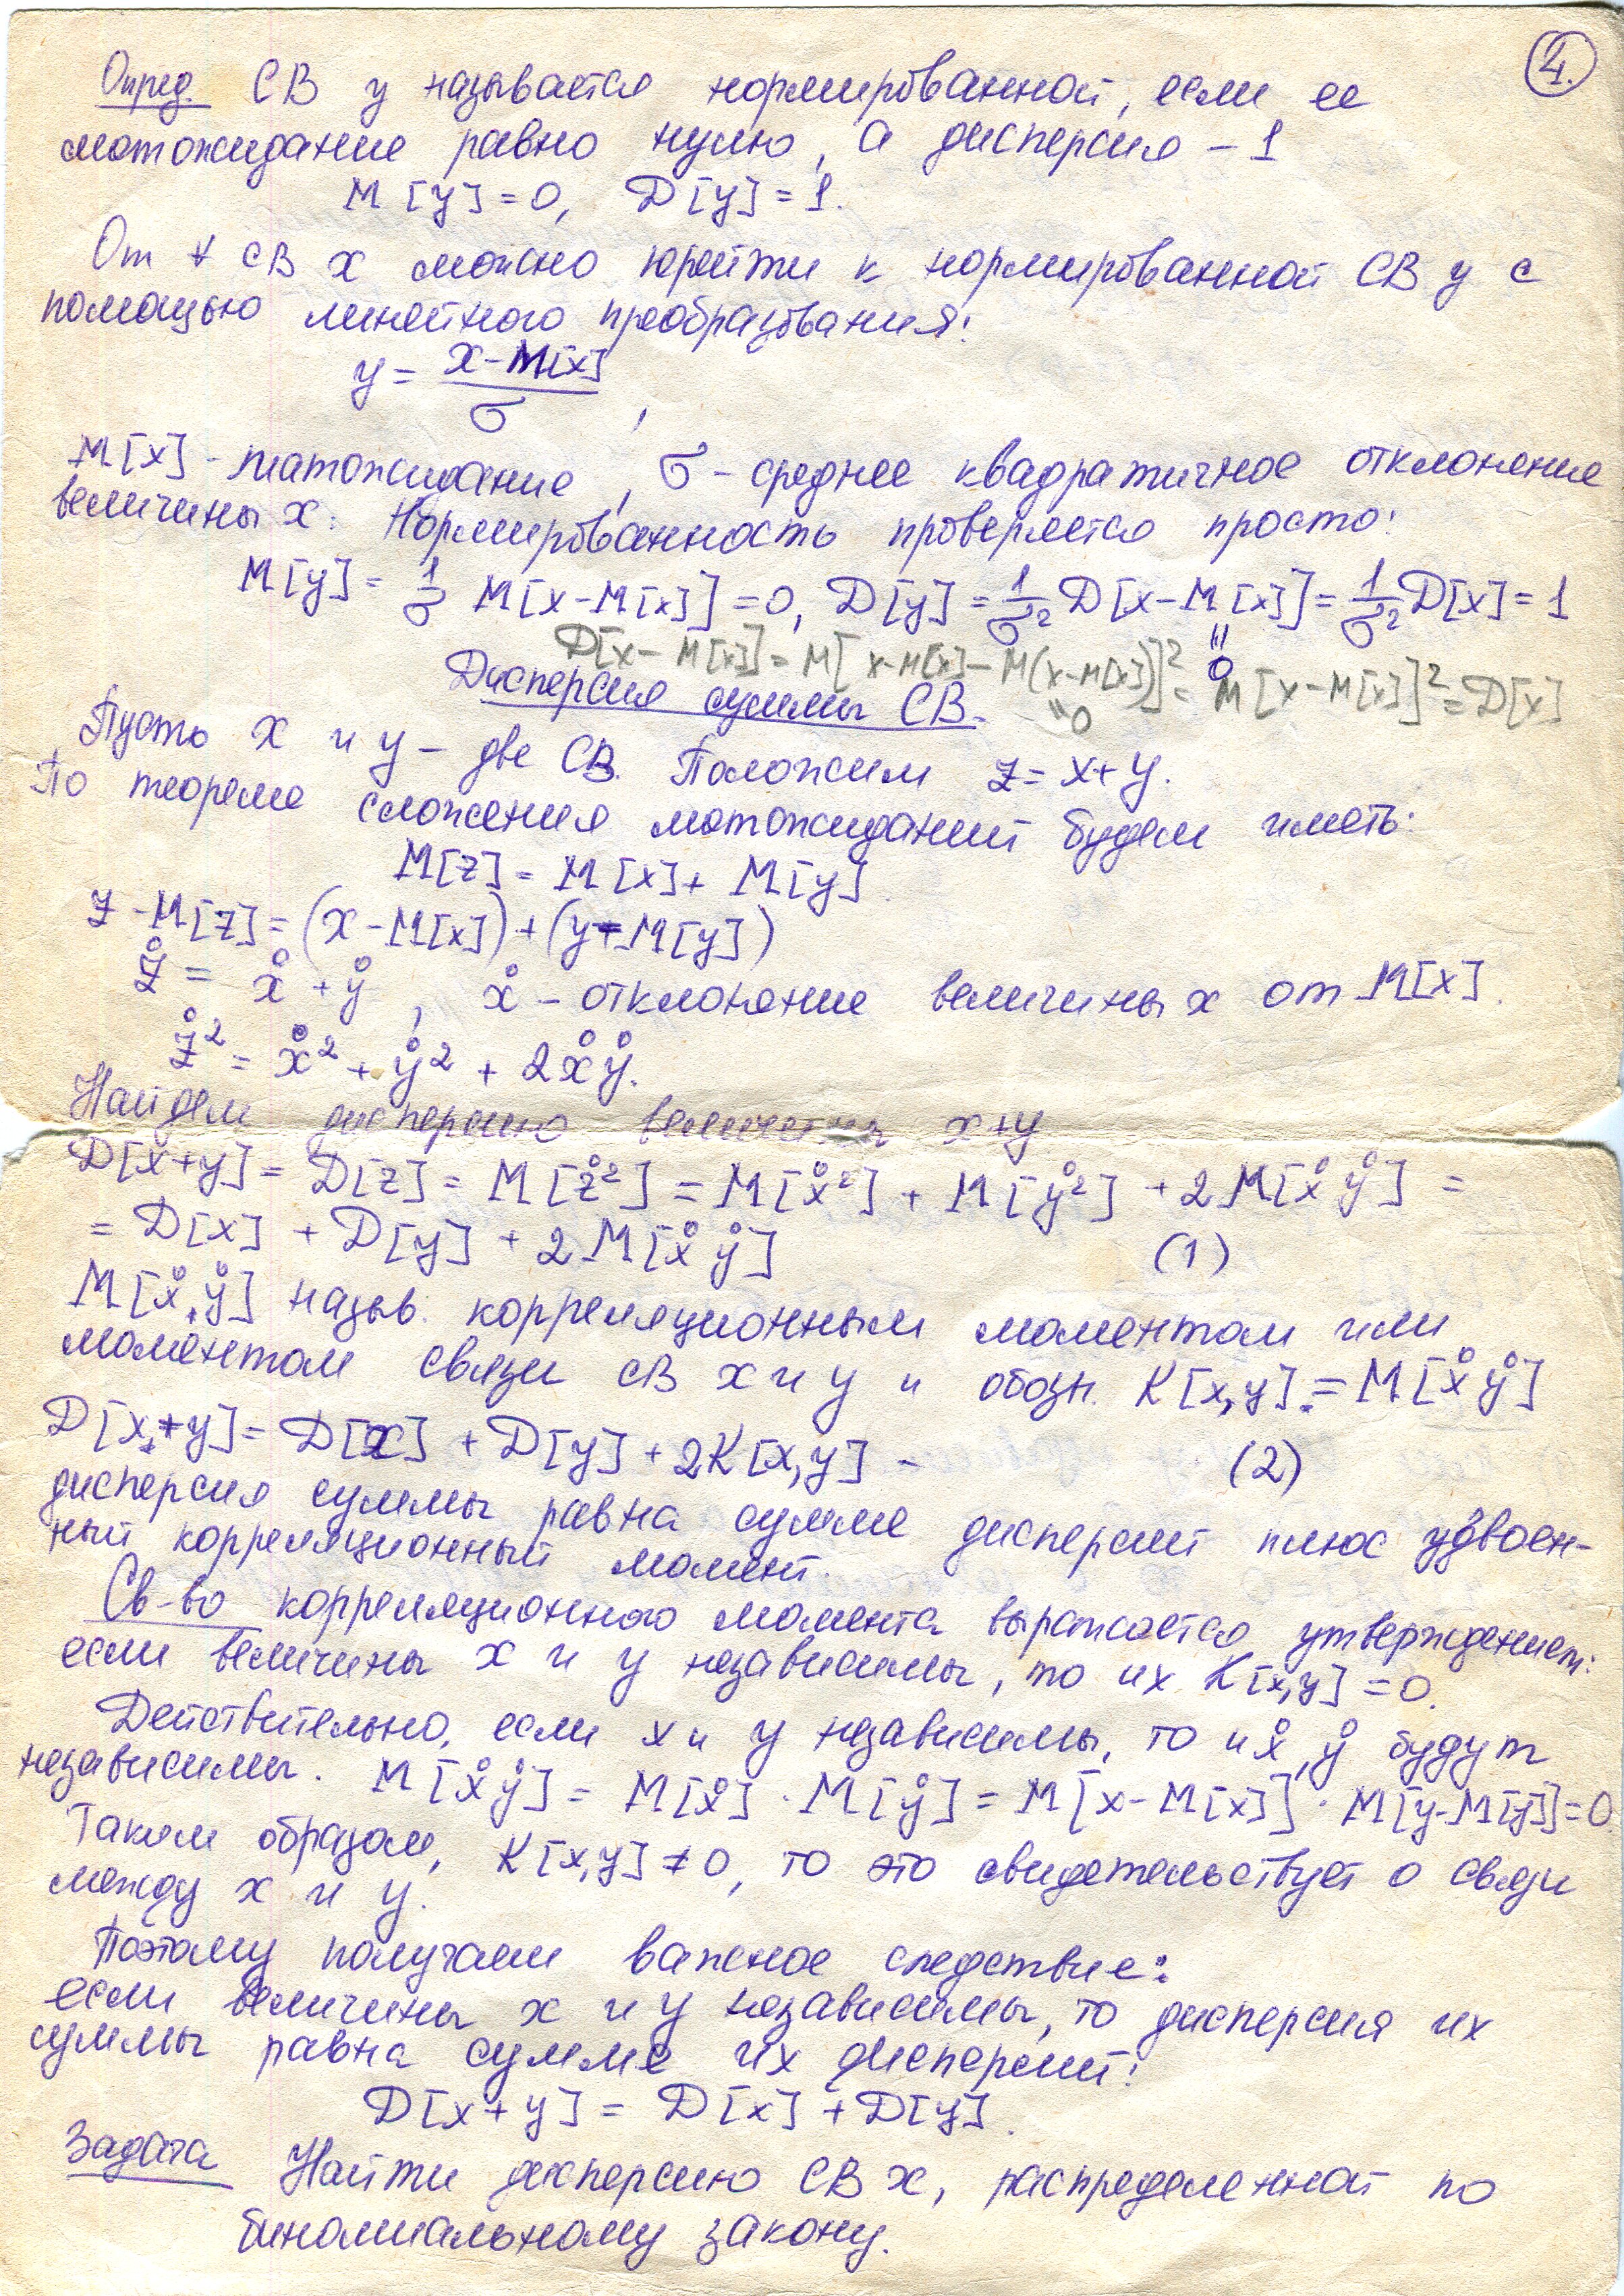 4.
Опред. СВ y называется нормированной, если ее
матожидание равно нулю, а дисперсия – 1
M[y] = 0, D[y] = 1.
От ∀ СВ x можно перейти к нормированной СВ y с
помощью линейного преобразования:
y = (x – M[x]) / σ ,
M[x] – матожидание, σ – среднее квадратичное отклонение
величины x. Нормированность проверяется просто:
M[y] = 1/σ M[x – M[x]] = 0, D[y] = 1/σ² D[x – M[x]] = 1/σ² D[x] = 1
D[x – M[x]] = M[x – M[x] – M(x – M[x])]² = M[x – M[x]]² = D[x]
" 0
" 0
Дисперсия суммы СВ.
Пусть x и y – две СВ. Положим z = x + y.
По теореме сложения матожиданий будем иметь:
M[z] = M[x] + M[y]
z – M[z] = (x – M[x]) + (y – M[y])
z̊ = x̊ + ẙ , x̊ – отклонение величины x от M[x].
z̊² = x̊² + ẙ² + 2x̊ẙ.
Найдем дисперсию величины x+y
D[x+y] = D[z] = M[z̊²] = M[x̊²] + M[ẙ²] + 2M[x̊ẙ] =
= D[x] + D[y] + 2M[x̊ẙ] (1)
M[x̊,ẙ] назыв. корреляционным моментом или
моментом связи СВ x и y и обозн. K[x,y] = M[x̊ẙ]
D[x+y] = D[x] + D[y] + 2K[x,y] – (2)
дисперсия суммы равна сумме дисперсий плюс удвоен-
ный корреляционный момент.
Св-во корреляционного момента выражается утверждением:
если величины x и y независимы, то их K[x,y] = 0.
Действительно, если x и y независимы, то и x̊, ẙ будут
независимы. M[x̊ẙ] = M[x̊] · M[ẙ] = M[x – M[x]] · M[y – M[y]] = 0.
Таким образом, K[x,y] ≠ 0, то это свидетельствует о связи
между x и y.
Поэтому получаем важное следствие:
если величины x и y независимы, то дисперсия их
суммы равна сумме их дисперсий:
D[x+y] = D[x] + D[y].
Задача Найти дисперсию СВ x, распределенной по
биномиальному закону.